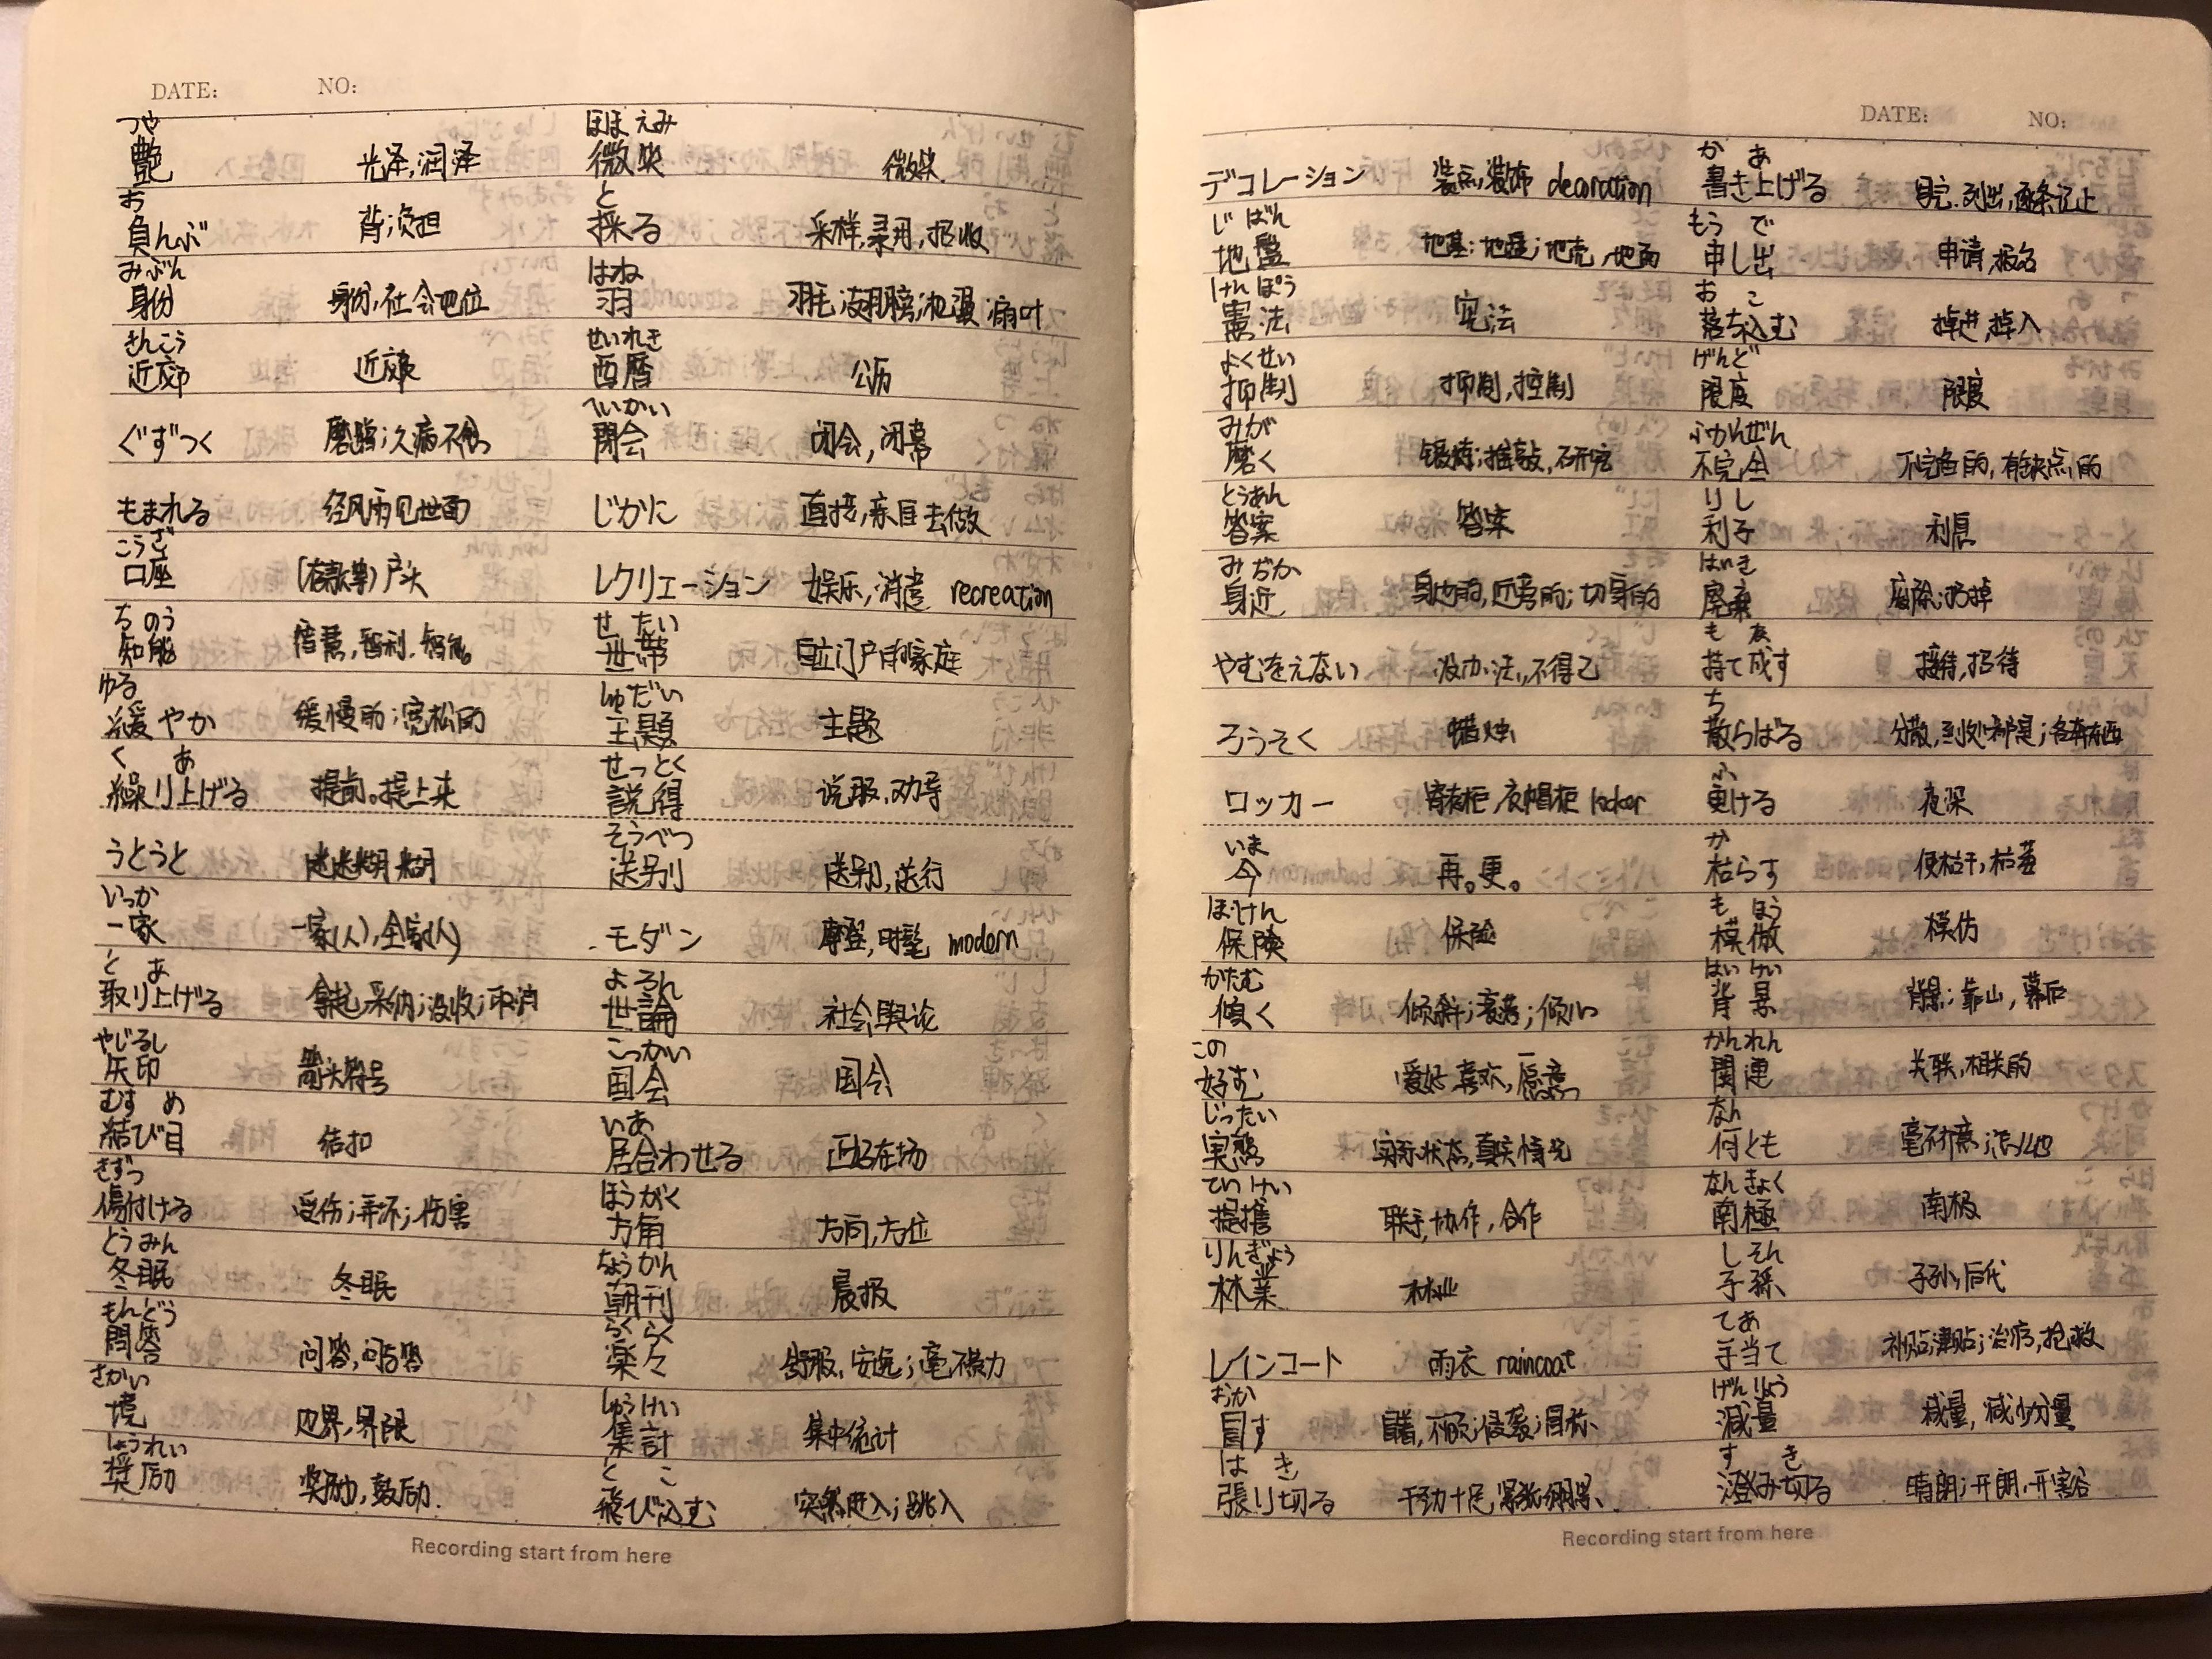 DATE: NO:
つや ほほえみ
艶 光泽,润泽 微笑 微笑
お と
負んぶ 背;负担 採る 采样,录用,招收
みぶん はね
身份 身份,社会地位 羽 羽毛;翅膀;扇叶
きんこう せいれき
近郊 近郊 西暦 公历
へいかい
ぐずつく 磨蹭;久病不愈 閉会 闭会,闭幕
もまれる 经风雨见世面 じかに 直接,亲自去做
こうざ
口座 (存款等)户头 レクリエーション 娱乐,消遣 recreation
ちのう せたい
知能 智慧,智利,智能 世帯 自立门户的家庭
ゆる しゅだい
緩やか 缓慢的;宽松的 主題 主题
く あ せっとく
繰り上げる 提前。提上来 説得 说服,劝导
そうべつ
うとうと 迷迷糊糊 送别 送别,送行
いっか
一家 一家(人),全家(人) モダン 摩登,时髦 modern
と あ よろん
取り上げる 拿起,采纳;没收;取消 世論 社会舆论
やじるし こっかい
矢印 箭头符号 国会 国会
むす め いあ
結び目 结扣 居合わせる 正好在场
きずつ ほうがく
傷付ける 受伤;弄坏;伤害 方角 方向,方位
とうみん ちょうかん
冬眠 冬眠 朝刊 晨报
もんどう らくらく
問答 问答,问与答 楽々 舒服,安逸;毫不费力
さかい しゅうけい
境 边界,界限 集計 集中统计
しょうれい と こ
奨励 奖励,鼓励. 飛び込む 突然进入;跳入
Recording start from here
DATE: NO:
か あ
デコレーション 装点,装饰 decoration 書き上げる 写完.列出,逐条记上
じばん もうで
地盤 地基;地盘;地壳,地面 申し出 申请,报名
けんぽう お こ
憲法 宪法 落ち込む 掉进,掉入
よくせい げんど
抑制 抑制,控制 限度 限度
みが ふかんぜん
磨く 锻炼;推敲,研究 不完全 不完全的,有缺点的
とうあん りし
答案 答案 利子 利息
みぢか はいき
身近 身边的,近旁的;切身的 廃棄 废除;扔掉
も な
やむをえない 没办法,不得已 持て成す 接待,招待
ち
ろうそく 蜡烛 散らばる 分散,到处都是;各奔东西
ふ
ロッカー 寄存柜,衣帽柜 locker 更ける 夜深
いま か
今 再。更。 枯らす 使枯干,枯萎
ほけん もほう
保険 保险 模倣 模仿
かたむ はいけい
傾く 倾斜;衰老;倾心 背景 背景;靠山,幕后
この かんれん
好む 爱好,喜欢,愿意 関連 关联,相关的
じったい なん
実態 实际状态,真实情况 何とも 毫不在意;怎么也
ていけい なんきょく
提携 联手,协作,合作 南極 南极
りんぎょう しそん
林業 林业 子孫 子孙,后代
てあ
レインコート 雨衣 raincoat 手当て 补贴,津贴;治疗,抢救
おか げんりょう
冒す 冒着,不顾;侵袭;冒称、 減量 减量,减少分量
は き す き
張り切る 干劲十足,紧张绷紧、 澄み切る 晴朗;开朗,开豁
Recording start from here